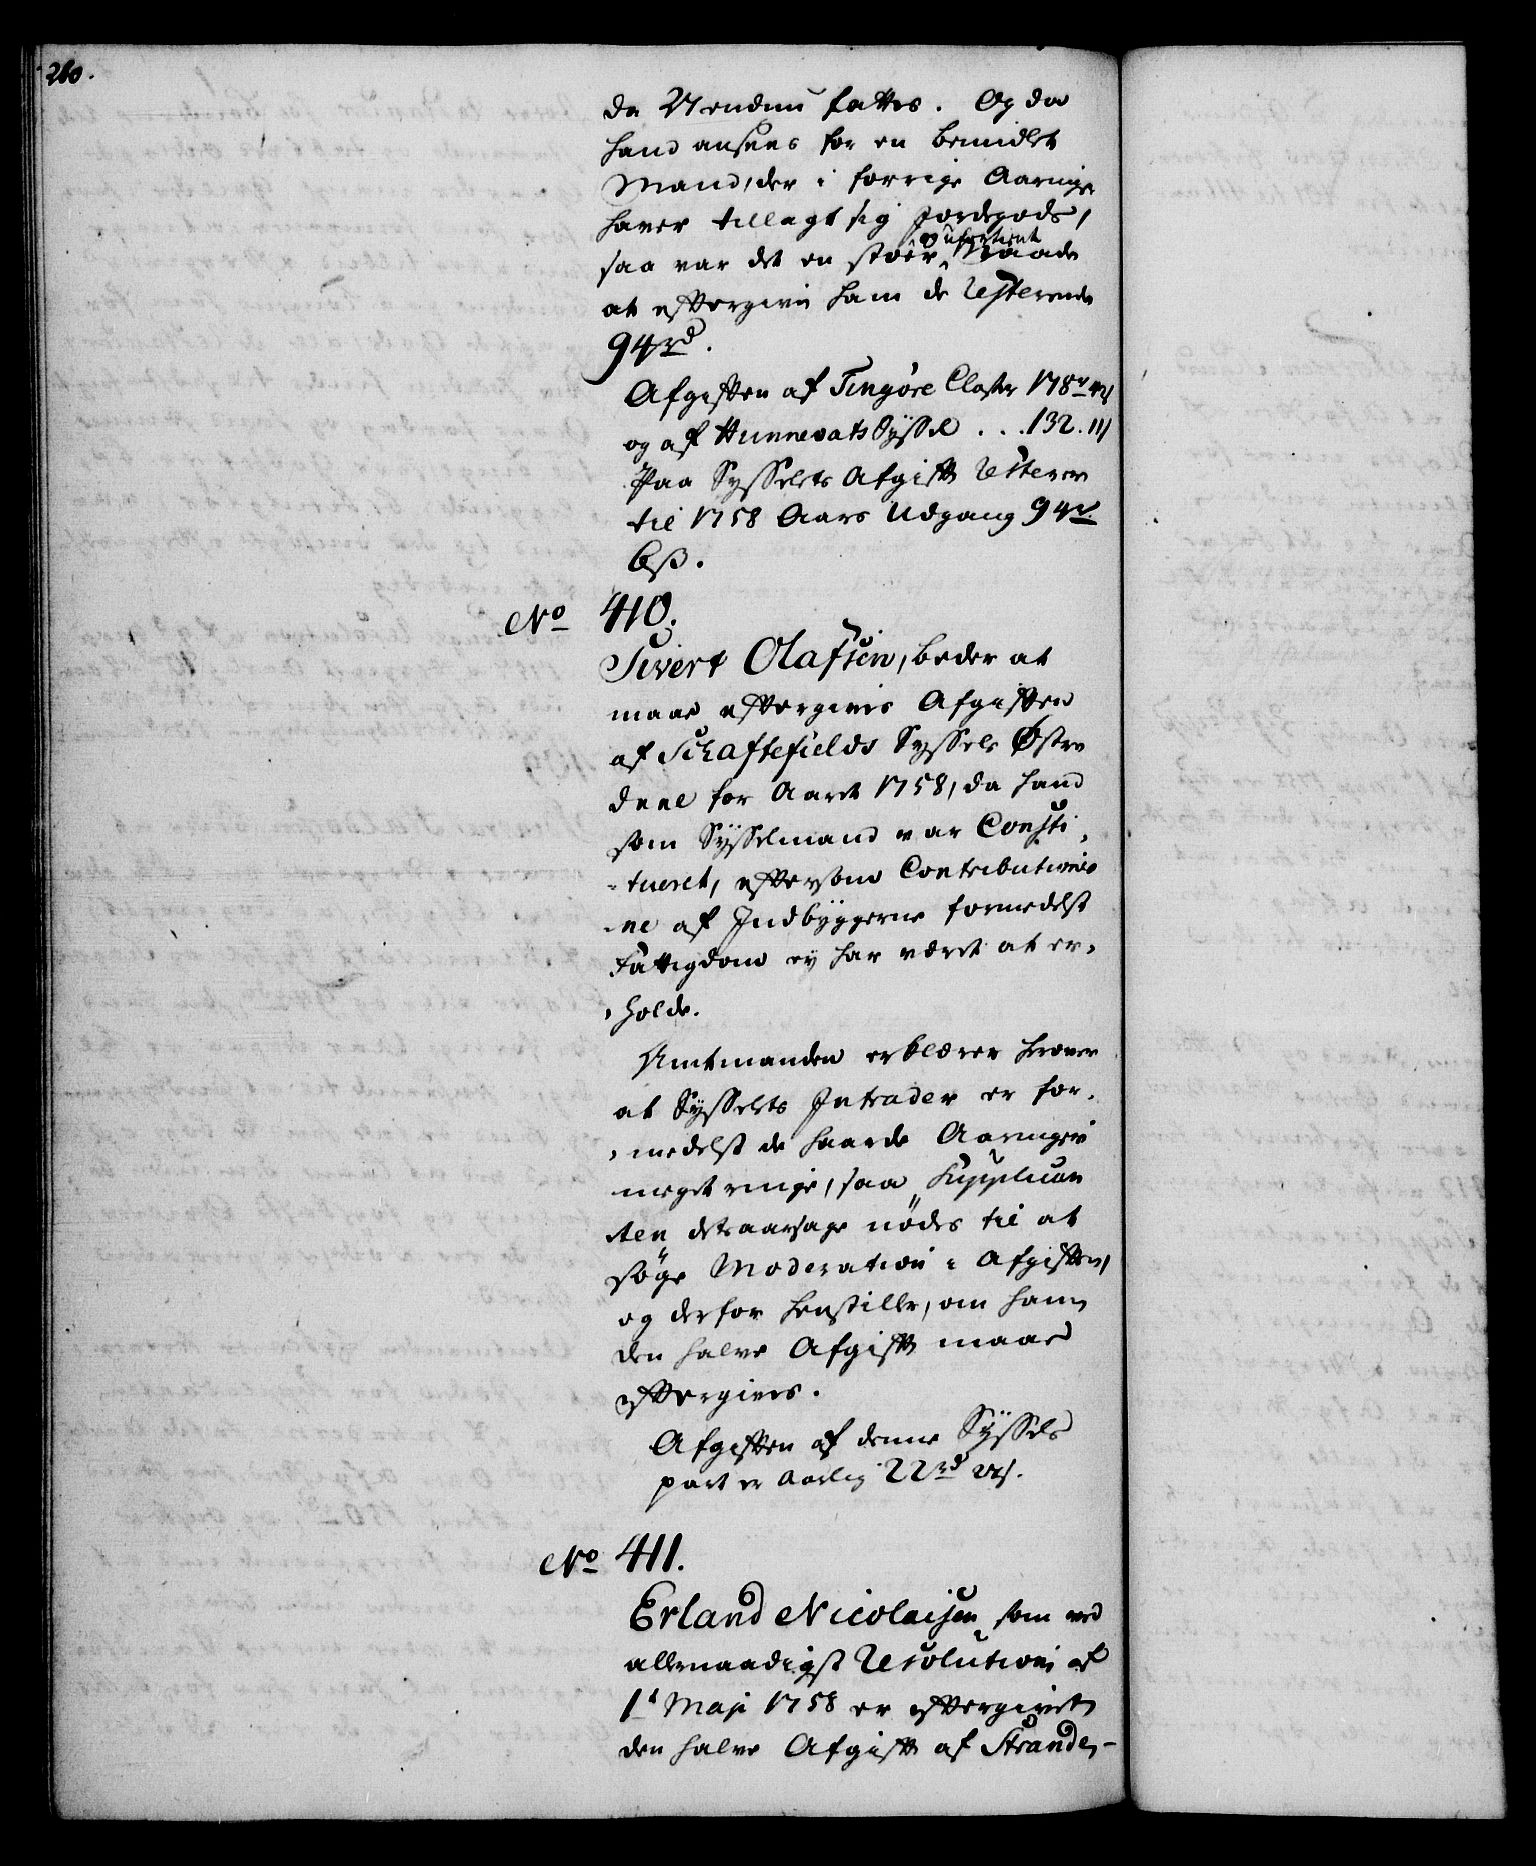 260.
de Uendnu fattes. Og da
hand ansees for en bemidlet
Mand, der i forrige Aaringer
haver tillagt sig Jordegods,
saa var det en stoer ufortient Naade
at eftergive ham de resterende
94rd.
Afgiften af Tingøre Closter 178rd
og af Hunnevats Syssel . . . 132.
Paa Sysselets Afgift resterer
til 1758 Aars Udgang 94rd
6ß.
No 410.
Sivert Olafsen, beder at
maae eftergives Afgiften
af Schaftefields Syssels Østre
Deel for Aaret 1758, da hand
som Sysselmand var Consti-
-tueret, eftersom Contributioner-
-ne af Indbyggerne formedelst
Fattigdom ey har været at er-
-holde.
Amtmanden erklærer herover
at Sysselets Intrader er for-
-medelst de haarde Aaringer
meget ringe, saa Supplican
ten detsaarsage nødes til at
søge Moderation i Afgiften,
og derfor henstiller, om ham
den halve Afgift maae
eftergives.
Afgiften af denne Syssels
part er Aarlig 22rd
No 411.
Erland Nicolaisen som ved
allernaadigst Resolution af
1t Maji 1758 er eftergivet
den halve Afgift af Strande-